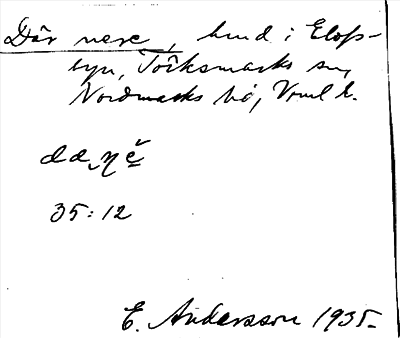 Där nere, hmd i Elofs-
byn, Töcksmarks sn,
Nordmarks hd, Vrml l.
35:12
E. Andersson 1935.